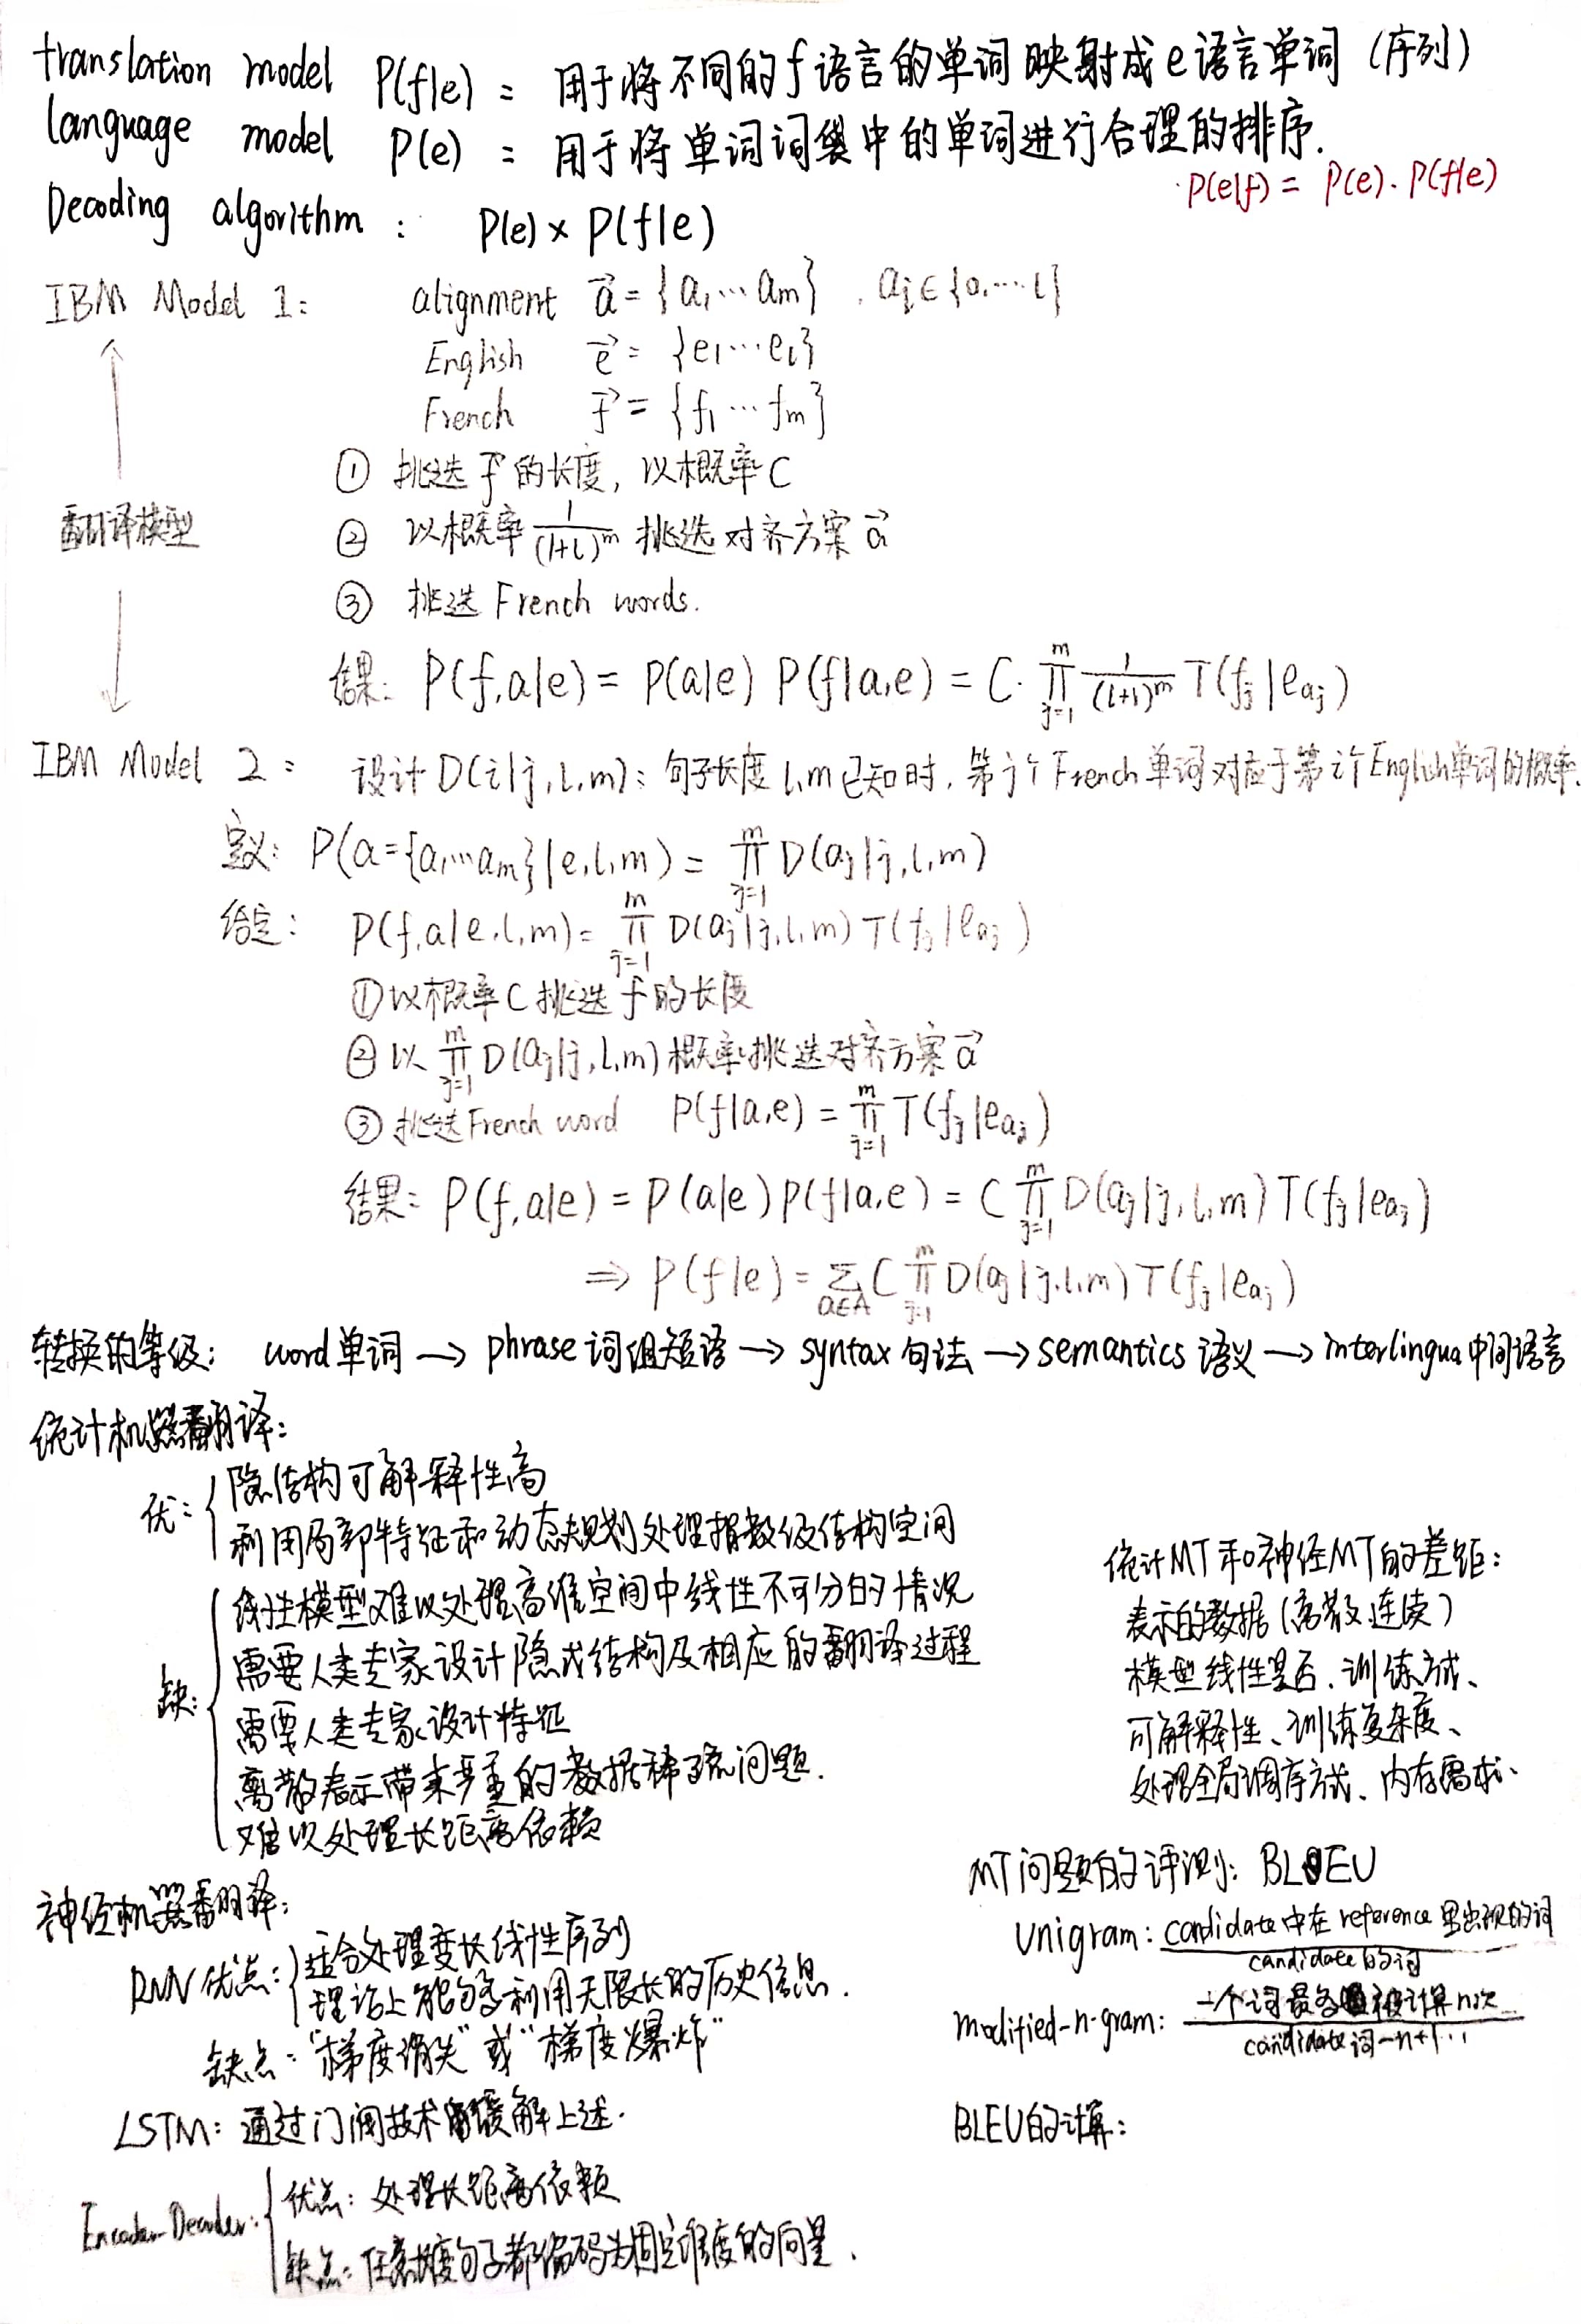 translation model P(f|e) : 用于将不同的f语言的单词映射成e语言单词 (序列)
language model P(e) : 用于将单词词袋中的单词进行合理的排序.
P(e|f) = P(e)·P(f|e)
Decoding algorithm : P(e) × P(f|e)
IBM Model 1: alignment \vec{a} = {a₁…a_m} , a_j ∈ {0,…l}
English \vec{e} = {e₁…e_l}
French \vec{f} = {f₁…f_m}
① 挑选 \vec{f} 的长度, 以概率C
翻译模型
② 以概率 1/(1+l)^m 挑选对齐方案 \vec{a}
③ 挑选 French words.
结果: P(f,a|e) = P(a|e) P(f|a,e) = C·∏_{j=1}^{m} 1/(l+1)^m T(f_j|e_{a_j})
IBM Model 2: 设计 D(i|j,l,m): 句子长度 l,m 已知时, 第j个 French 单词对应于第i个English单词的概率.
定义: P(a={a₁…a_m}|e,l,m) = ∏_{j=1}^{m} D(a_j|j,l,m)
给定: P(f,a|e,l,m) = ∏_{j=1}^{m} D(a_j|j,l,m) T(f_j|e_{a_j})
①以概率C挑选f的长度
②以 ∏_{j=1}^{m} D(a_j|j,l,m) 概率挑选对齐方案 \vec{a}
③挑选French word P(f|a,e) = ∏_{j=1}^{m} T(f_j|e_{a_j})
结果: P(f,a|e) = P(a|e) P(f|a,e) = C ∏_{j=1}^{m} D(a_j|j,l,m) T(f_j|e_{a_j})
⇒ P(f|e) = ∑_{a∈A} C ∏_{j=1}^{m} D(a_j|j,l,m) T(f_j|e_{a_j})
转换的等级: word单词 → phrase词组短语 → syntax句法 → semantics语义 → interlingua中间语言
统计机器翻译:
优: 隐结构可解释性高
利用局部特征和动态规划处理指数级结构空间
缺: 线性模型难以处理高维空间中线性不可分的情况
需要人类专家设计隐式结构及相应的翻译过程
需要人类专家设计特征
离散表示带来严重的数据稀疏问题.
难以处理长距离依赖
统计MT和神经MT的差距:
表示的数据(离散,连续)
模型线性是否、训练方式、
可解释性、训练复杂度、
处理全局调序方式、内存需求、
神经机器翻译:
RNN 优点: 适合处理变长线性序列
理论上能够利用无限长的历史信息.
缺点: "梯度消失" 或 "梯度爆炸"
LSTM: 通过门阀技术缓解上述.
Encoder-Decoder: 优点: 处理长距离依赖
缺点: 任意长度句子都编码为固定维度的向量.
MT问题的评测: BLEU
Unigram: candidate中在reference里出现的词
candidate的词
modified-n-gram: 一个词最多被计算n次
candidate词-n+1
BLEU的计算: